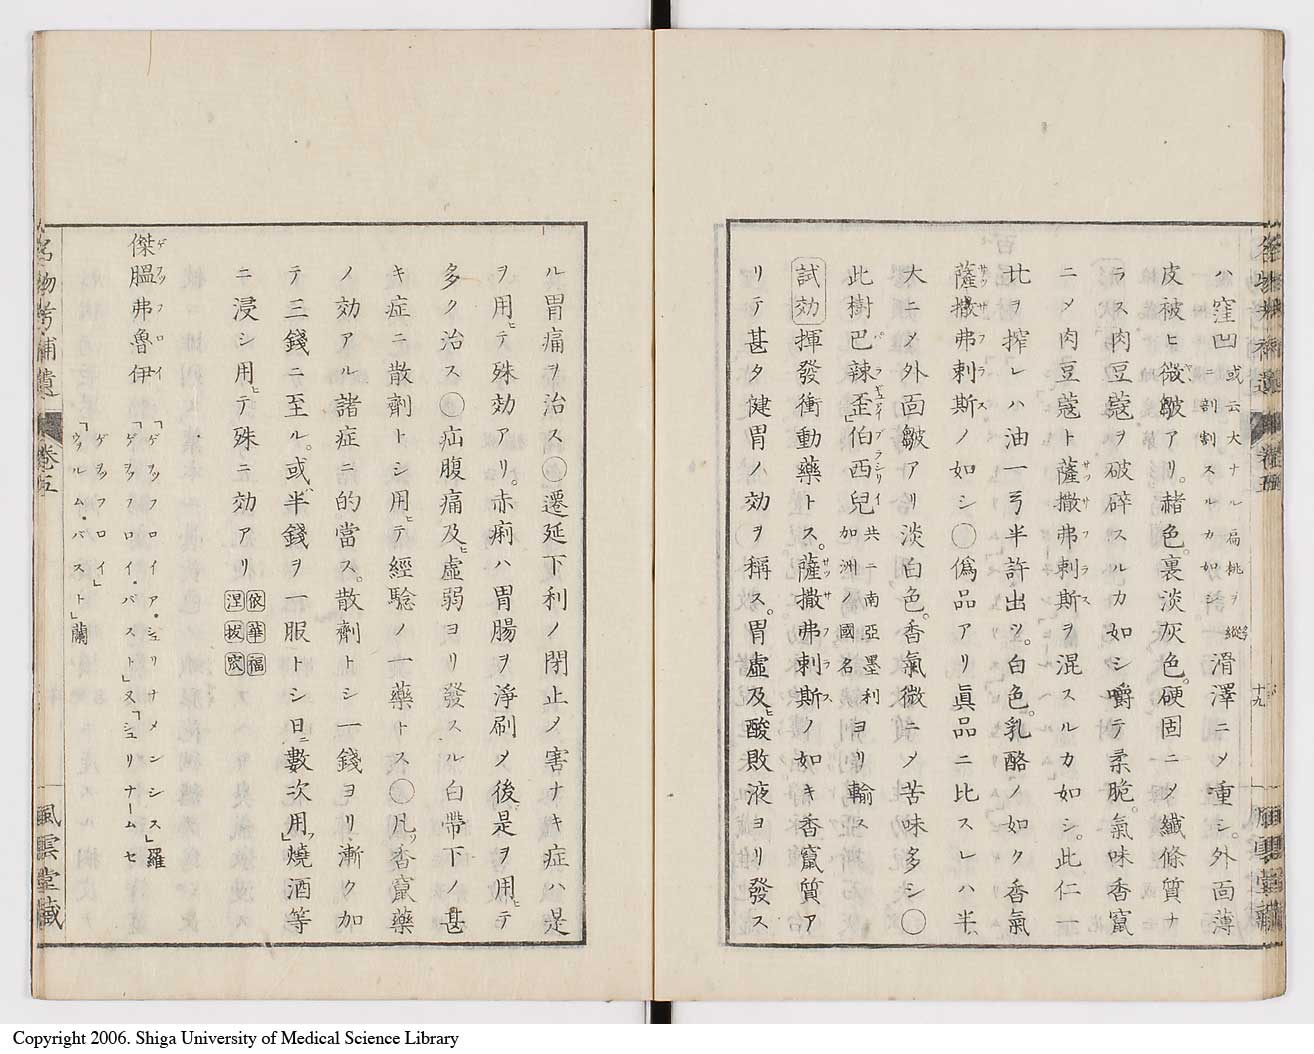 ハ窪凹或云大ナル扁桃ヲ縱ニ割スルカ如シ滑澤ニ〆重シ。外面薄
皮被ヒ微皺アリ。赭色。裏淡灰色。硬固ニ〆纎條質ナ
ラス肉豆蔲ヲ破碎スルカ如シ嚼テ柔脆。氣味香竄
ニ〆肉豆蔲ト薩撒弗剌斯ヲ混スルカ如シ。此仁一
北ヲ搾レハ油一弓半許出ツ。白色。乳酪ノ如ク香氣
薩撒弗剌斯ノ如シ○僞品アリ眞品ニ比スレハ半ハ
大ニ〆外面皺アリ淡白色。香氣微ニ〆苦味多シ○
此樹巴辣歪」伯西兒共ニ南亞墨利加洲ノ國名ヨリ輸ス
試効 揮發衝動藥トス。薩撒弗剌斯ノ如キ香竄質ア
リテ甚タ健胃ノ効ヲ稱ス。胃虛及ヒ酸敗液ヨリ發ス
名物考補遺 卷五 十九 風雲堂藏
ル胃痛ヲ治ス○遷延下利ノ閉止ノ害ナキ症ハ是
ヲ用ヒテ殊効アリ。赤痢ハ胃腸ヲ淨刷〆後ニ是ヲ用ヒテ
多ク治ス○疝腹痛及ヒ虛弱ヨリ發スル白帶下ノ甚
キ症ニ散劑トシ用ヒテ經驗ノ一藥トス○凡ソ香竄藥
ノ効アル諸症ニ的當ス。散劑トシ一錢ヨリ漸ク加
テ三錢ニ至ル。或ハ半錢ヲ一服トシ日ニ數次用フ」燒酒等
ニ浸シ用ヒテ殊ニ効アリ 依華福 涅拔
傑膃弗魯伊 「ゲヲフロイア・シュリナメンシス」羅
「ゲヲフロイ・バスト」又「シュリナームセ
ゲヲフロイ」
「ウォルム・バスト」蘭
名物考補遺 卷五 風雲堂藏
Copyright 2006. Shiga University of Medical Science Library